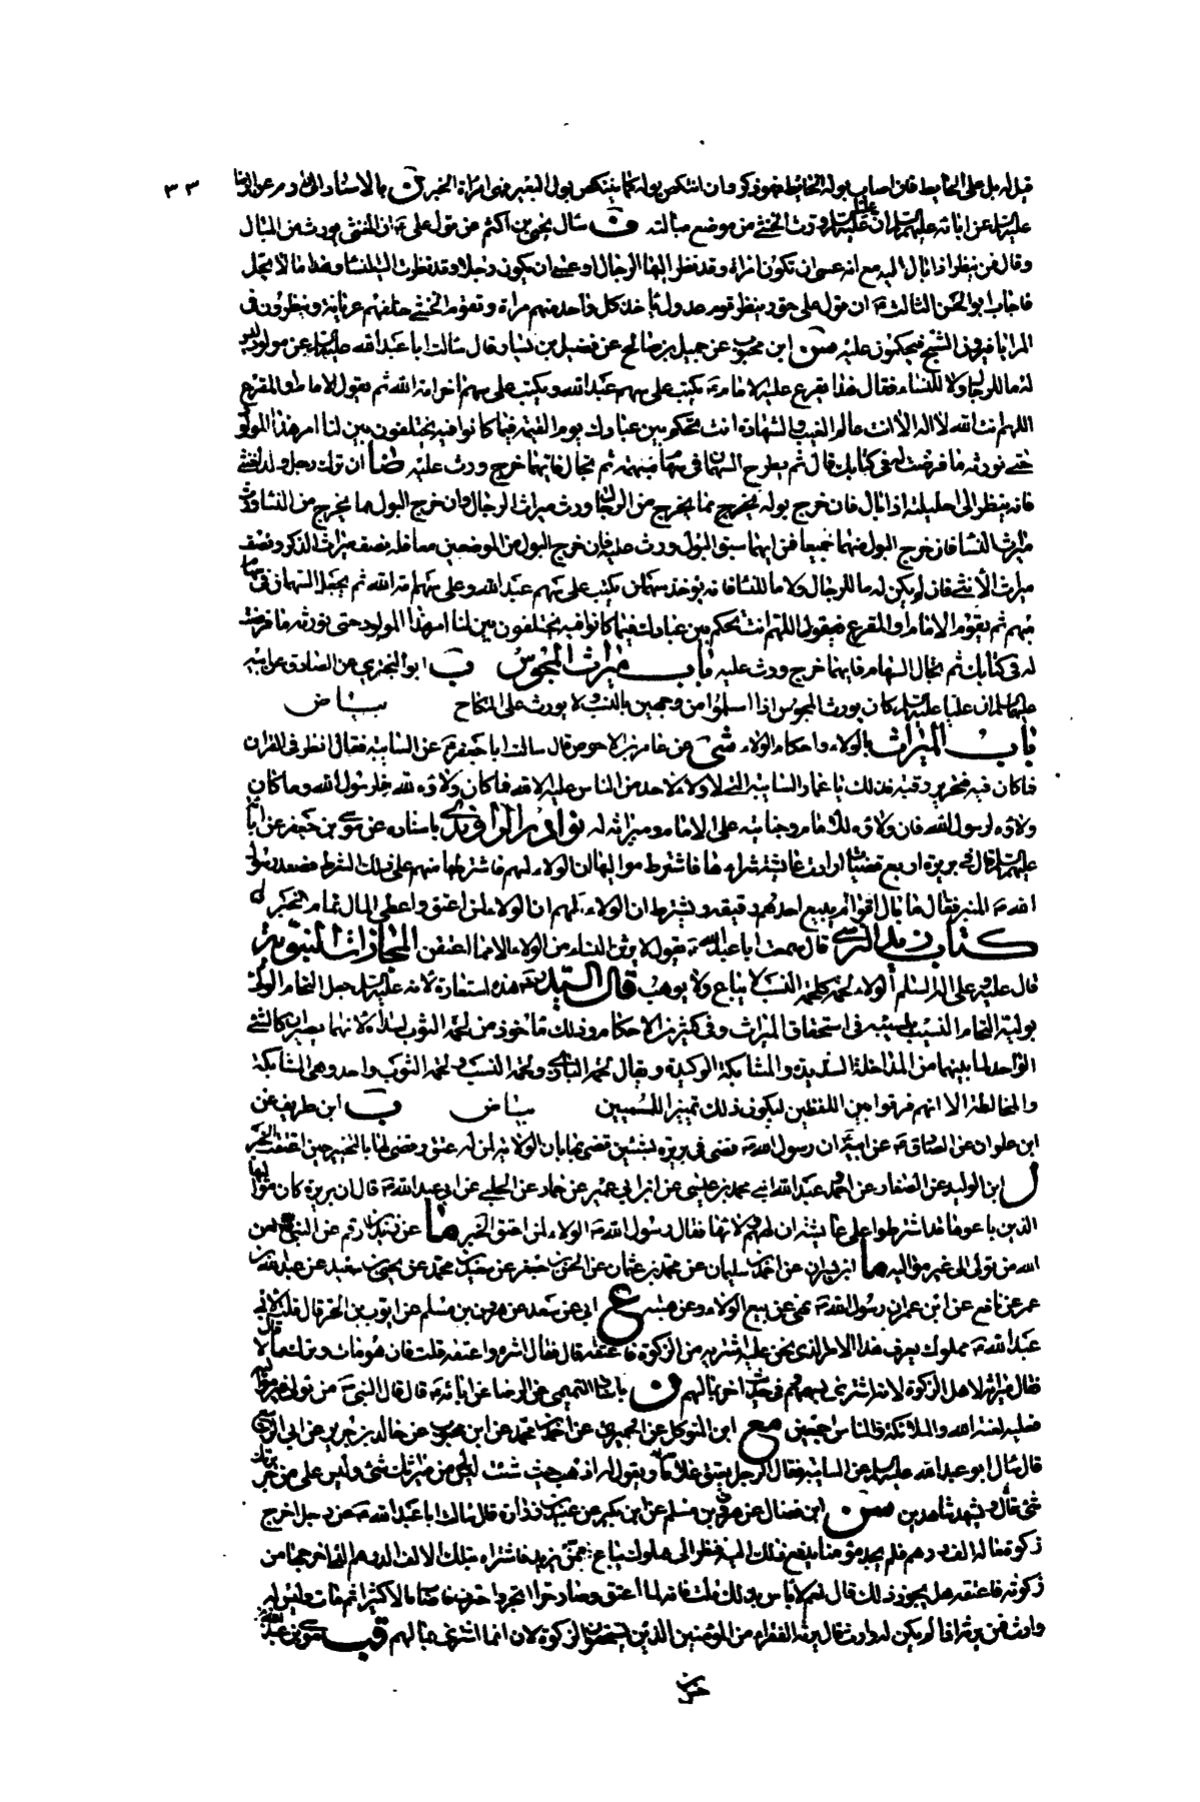 قيل له بل على الحايط فان اصاب بوله الحايط فهو ذكر وان انتكص بوله كما ينتكص بول البعير فهى امراة الخبر ن بالاسناد الى دارم عن الرضا ٣٣
عليه السلام عن ابائه عليهم السلام ان عليا عليه السلام ورث الخنثى من موضع مباله ف سال يحيى بن اكثم عن قول على ع ان الخنثى يورث من المبال
وقال فمن ينظر اذا بال اليه مع انه عسى ان تكون امراة وقد نظر اليها الرجال او عسى ان يكون رجلا وقد نظرت اليه النساء وهذا ما لا يحل
فاجاب ابو الحسن الثالث ع ان قول على حق وينظر قوم عدول ياخذ كل واحد منهم مراة وتقوم الخنثى خلفهم عريانة وينظرون فى
المرايا فيرون الشبح فيحكمون عليه سن ابن محبوب عن جميل بن صالح عن فضيل بن يسار قال سالت ابا عبد الله عليه السلام عن مولود ليس
له ما للرجال ولا للنساء فقال هذا يقرع عليه الامام ع يكتب على سهم عبد الله ويكتب على سهم اخر امة الله ثم يقول الامام او المقرع
اللهم انت الله لا اله الا انت عالم الغيب والشهادة انت تحكم بين عبادك يوم القيمة فيما كانوا فيه يختلفون بين لنا امر هذا المولود
حتى نورثه ما فرضت له فى كتابك قال ثم يطرح السهمان فى سهام مبهمة ثم تجال فايهما خرج ورث عليه ضا ان ترك رجل ولدا خنثى
فانه ينظر الى احليله اذا بال فان خرج بوله مما يخرج من الرجال ورث ميراث الرجال وان خرج البول مما يخرج من النساء ورث
ميراث النساء فان خرج البول منهما جميعا فمن ايهما سبق البول ورث عليه فان خرج البول من الموضعين معا فله نصف ميراث الذكر ونصف
ميراث الانثى فان لم يكن له ما للرجال ولا ما للنساء فانه يوخذ سهمان يكتب على سهم عبد الله وعلى سهم امة الله ثم يجعل السهمان فى سهام
مبهم ثم يقوم الامام او المقرع فيقول اللهم انت تحكم بين عبادك فيما كانوا فيه يختلفون بين لنا امر هذا المولود حتى نورثه ما فرضت
له فى كتابك ثم تجال السهام فايهما خرج ورث عليه باب ميراث المجوس ب ابو البخترى عن الصادق عن ابيه
عليهما السلام ان عليا عليه السلام كان يورث المجوس اذا اسلموا من وجهين بالنسب ولا يورث على النكاح بياض
باب الميراث بالولاء واحكام الولاء شى عن عامر بن الاحوص قال سالت ابا جعفر ع عن السائبة فقال انظر فى القران
فما كان فيه تحرير رقبة فذلك يا عمار السائبة التى لا ولاء لاحد من الناس عليه الا الله فما كان ولاؤه لله فلرسول الله وما كان
ولاؤه لرسول الله فان ولاؤه للامام وجنايته على الامام وميراثه له نوادر الراوندى باسناده عن موسى بن جعفر عن ابائه
عليهم السلام قال فى بريرة اربع قضيات ارادت عائشة شراءها فاشترط مواليها ان الولاء لهم فاشترتها منهم على ذلك الشرط فصعد رسول
الله ص المنبر فقال ما بال اقوام يبيع احدهم رقيقه ويشترط ان الولاء لهم ان الولاء لمن اعتق واعطى المال تمام الخبر
كتاب زيد النرسى قال سمعت ابا عبد الله ع يقول لا يرث النساء من الولاء الا ما اعتقن المجازات النبوية
قال عليه وعلى اله السلم الولاء لحمة كلحمة النسب لا يباع ولا يوهب قال السيد هذه استعارة لانه عليه السلام جعل التحام الولى
بوليه التحام النسيب بنسيبه فى استحقاق الميراث وفى كثير من الاحكام وذلك ماخوذ من لحمة الثوب لسداه لانهما يصيران كالشىء
الواحد لما بينهما من المداخلة الشديدة والمشابكة الوكيدة ويقال لحمة البازى ولحمة النسب ولحمة الثوب واحد وهى المشابكة
والمخالطة الا انهم فرقوا بين اللفظين ليكون ذلك تمييزا للمسميين بياض ب ابن طريف عن
ابن علوان عن الصادق ع عن ابيه ع ان رسول الله ص قضى فى بريرة بشيئين قضى فيها بان الولاء لمن اعتق وقضى لها بالتخيير حين اعتقت الخبر
ل ابن الوليد عن الصفار عن احمد وعبد الله ابنى محمد بن عيسى عن ابن ابى عمير عن حماد عن الحلبى عن ابى عبد الله ع قال ان بريرة كان مواليها
الذين باعوها قد اشترطوا على عايشة ان لهم ولاءها فقال رسول الله ص الولاء لمن اعتق الخبر ما عن زيد بن ارقم عن النبى ص لعن
الله من تولى الى غير مواليه ما ابن بشران عن احمد بن سليمان عن محمد بن عثمان عن الحسن بن جعفر عن محمد عن يحيى بن سعيد عن عبد الله بن
عمر عن نافع عن ابن عمر ان رسول الله ص نهى عن بيع الولاء وعن هبته ع ابى عن سعد عن هرون بن مسلم عن ايوب بن الحر قال قلت لابى
عبد الله ع مملوك يعرف هذا الامر الذى نحن عليه اشتريه من الزكوة فاعتقه قال فقال اشتره واعتقه قلت فان هو مات وترك مالا قال
فقال ميراثه لاهل الزكوة لانه اشترى بسهمهم فى حديث اخر بمالهم ن باسناد التميمى عن الرضا عن ابائه ع قال قال النبى ص من تولى غير مواليه
فعليه لعنة الله والملائكة والناس اجمعين مع ابن المتوكل عن الحميرى عن احمد بن محمد عن ابن محبوب عن خالد بن جرير عن ابى الربيع
قال سئل ابو عبد الله عليه السلام عن السائبة فقال الرجل يعتق غلامه ويقول له اذهب حيث شئت ليس لى من ميراثك شىء وليس على من جريرتك
شىء قال ويشهد شاهدين سن ابن فضال عن هرون بن مسلم عن ابن بكير عن عبيد بن زرارة قال سالت ابا عبد الله ع عن رجل اخرج
زكوة ماله الف درهم فلم يجد مؤمنا يدفع ذلك اليه فنظر الى مملوك يباع فيمن يزيد فاشتراه بتلك الالف الدرهم التى اخرجها من
زكوته فاعتقه هل يجوز ذلك قال نعم لا باس بذلك قلت فانه لما اعتق وصار حرا اتجر واحترف فاصاب مالا كثيرا ثم مات وليس له
وارث فمن يرثه اذا لم يكن له وارث قال يرثه الفقراء من المؤمنين الذين يستحقون الزكوة لانه انما اشترى بمالهم قب موسى بن عبد الله